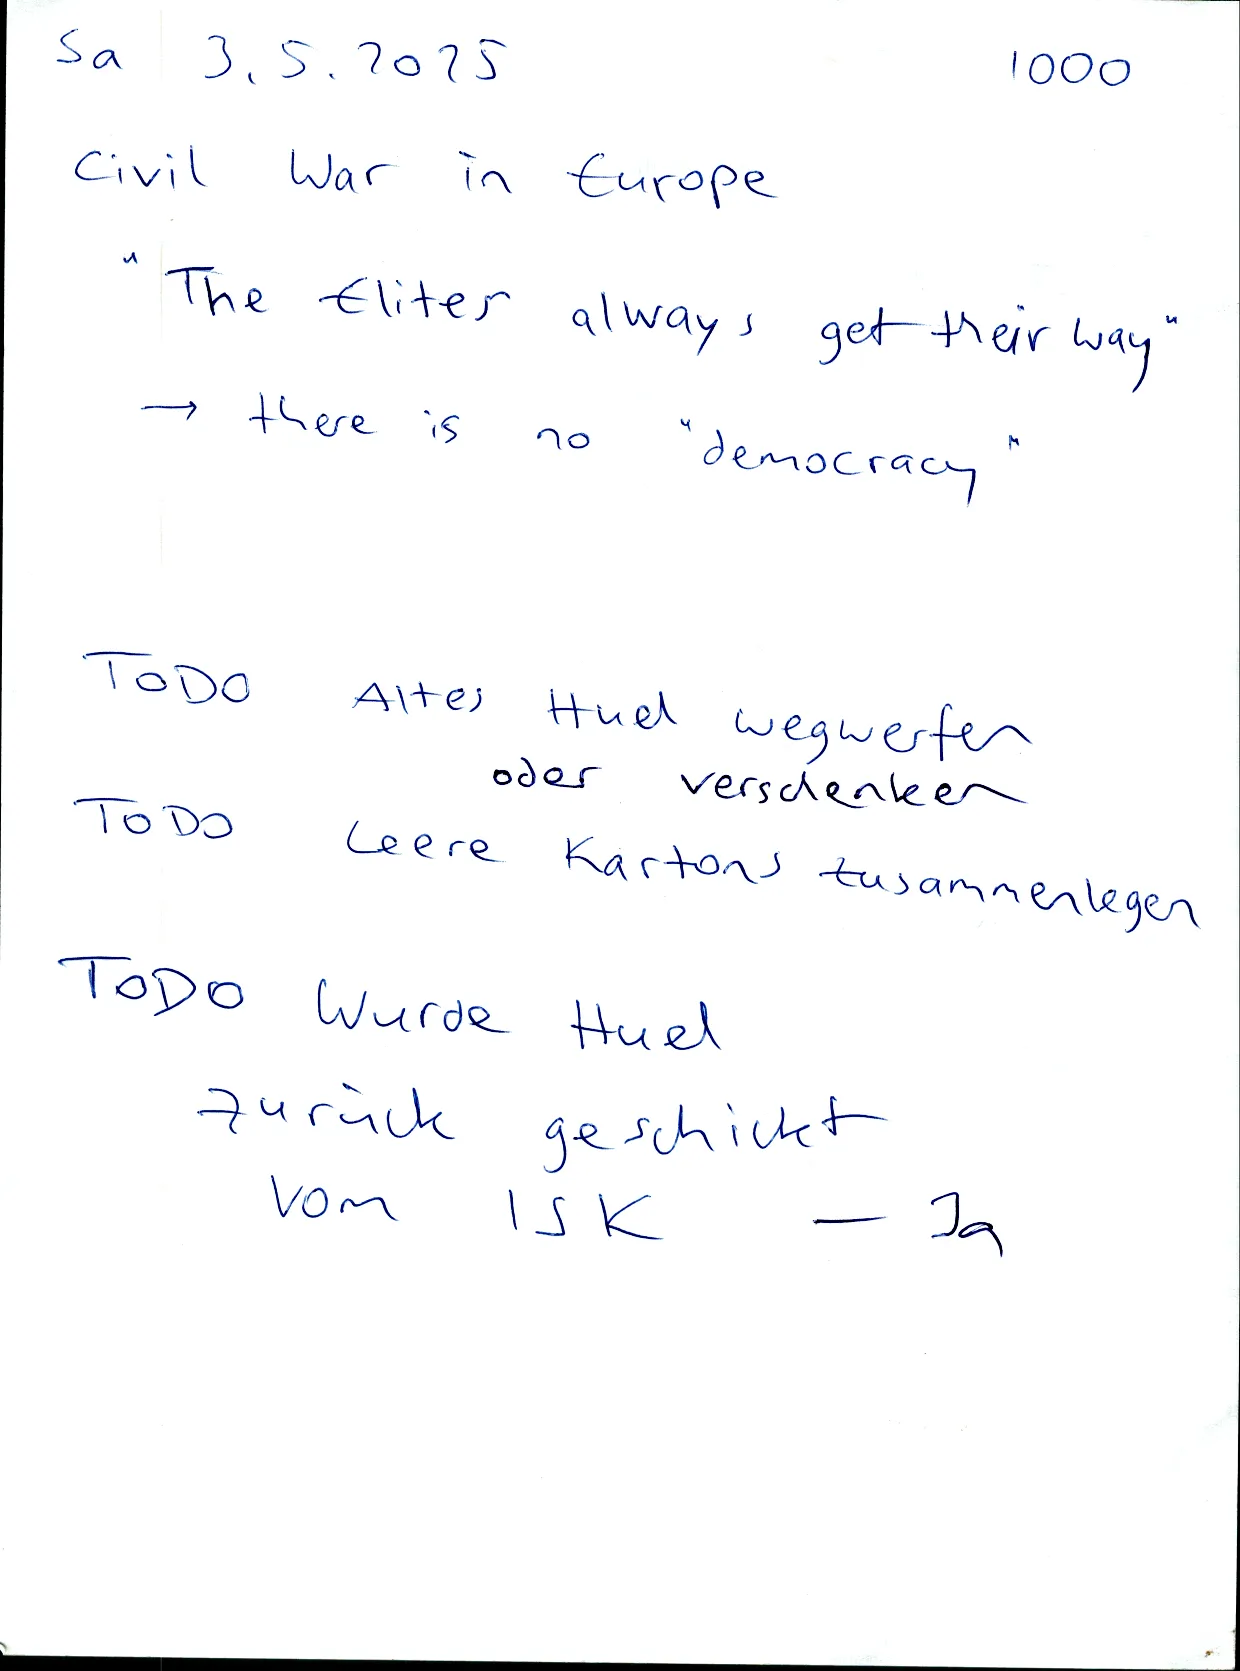 Sa 3.5.2025 1000
Civil War in Europe
"The Elites always get their way"
→ there is no "democracy"
TODO Altes Huel wegwerfen
oder verschenken
TODO Leere Kartons zusammenlegen
TODO Wurde Huel
zurück geschickt
vom ISK — Ja